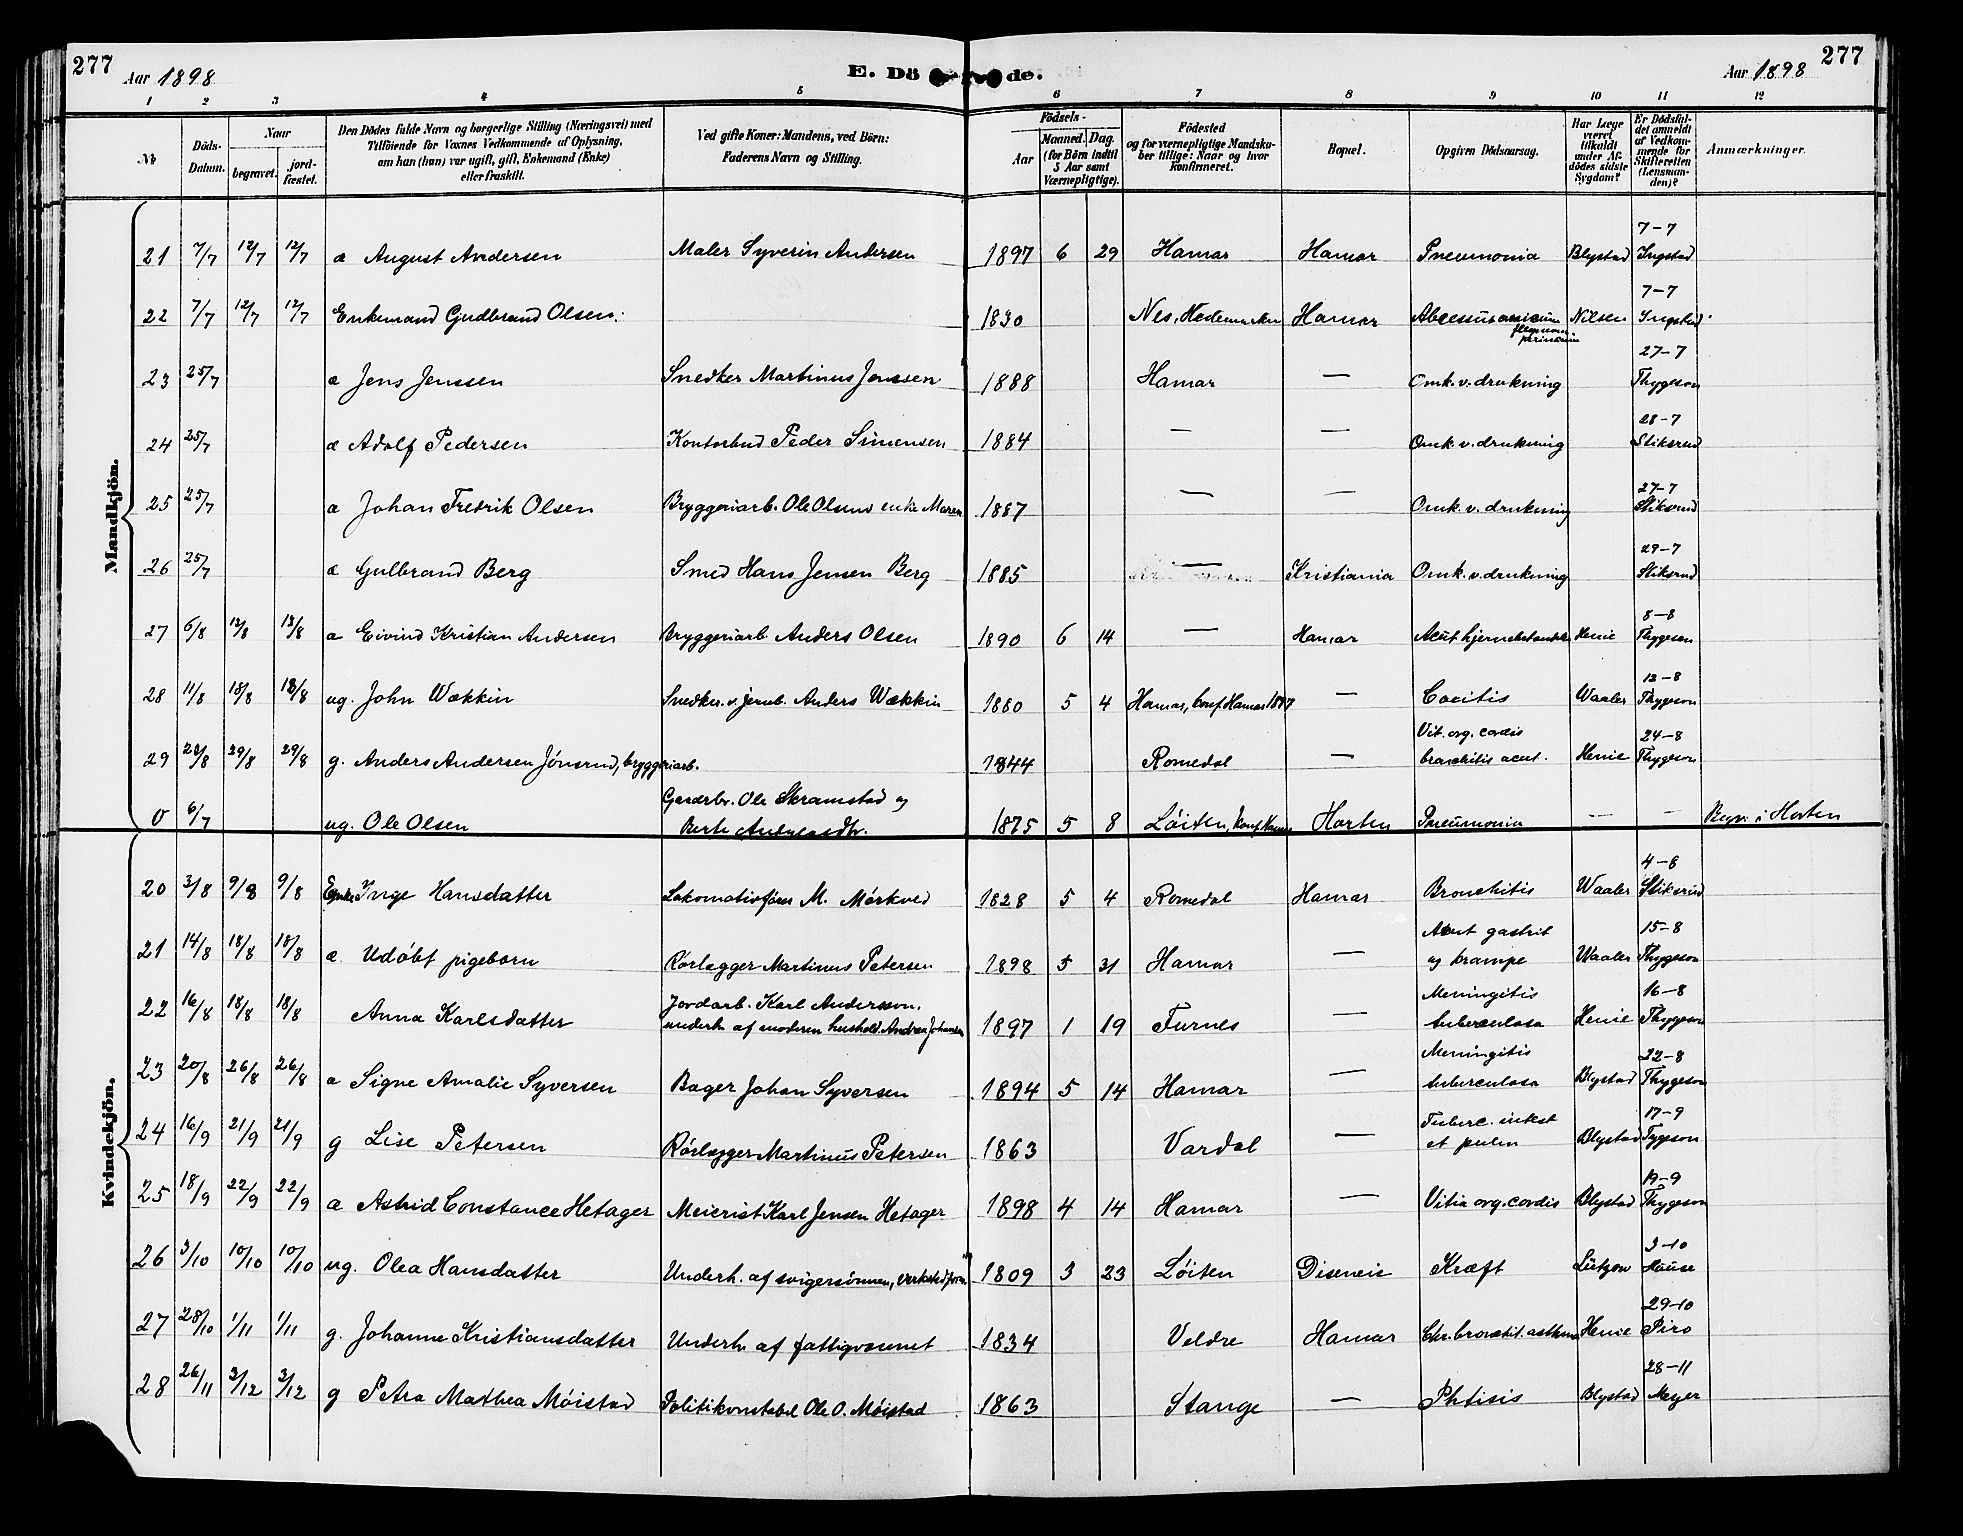 277
Aar 1898
E. Dö de.
Aar 1898
277
1 2 3 4 5 6 7 8 9 10 11 12
№
Döds-
Datum.
Naar
begravet.
jord-
fæstet.
Den Dödes fulde Navn og borgerlige Stilling (Næringsvei) med
Tilföiende for Voxnes Vedkommende af Oplysning,
om han (hun) var ugift, gift, Enkemand (Enke)
eller fraskilt.
Ved gifte Koner: Mandens, ved Börn:
Faderens Navn og Stilling.
Födsels-
Aar
Maaned.
Dag.
(for Börn indtil
5 Aar samt
Værnepligtige).
Födested
og for værnepligtige Mandska-
ber tillige: Naar og hvor
konfirmeret.
Bopæl.
Opgiven Dödsaarsag.
Har Læge
været
tilkaldt
under Af-
dödes sidste
Sygdom?
Er Dödsfal-
det anmeldt
af Vedkom-
mende for
Skifteretten
(Lensman-
den)?
Anmærkninger.
Mandkjön.
21 7/7 12/7 12/7 æ August Andersen Maler Syverin Andersen 1897 6 29 Hamar Hamar Pneumonia Blystad 7-7 Ingstad
22 7/7 12/7 12/7 Enkemand Gudbrand Olsen. 1830 Nes, Hedemarken Hamar Abcessus Nilsen 7-7 Ingstad
23 25/7 æ Jens Jenssen Snedker Martinus Jenssen 1888 Hamar — Omk. v. drukning 27-7 Thygeson
24 25/7 æ Adolf Pedersen Kontorbud Peder Simensen 1884 — — Omk. v. drukning 28-7 Stiksrud
25 25/7 æ Johan Fredrik Olsen Bryggeriarb. Ole Olsens enke Maren 1887 — — Omk. v. drukning 27-7 Stiksrud
26 25/7 æ Gulbrand Berg Smed Hans Jensen Berg 1885 — Kristiania Omk. v. drukning 29-7 Stiksrud
27 6/8 13/8 13/8 æ Eivind Kristian Andersen Bryggeriarb. Anders Olsen 1890 6 14 — Hamar Acut Henie 8-8 Thygeson
28 11/8 18/8 18/8 ug. John Wækkin Snedker. v. jernb. Anders Wækkin 1880 5 4 Hamar, Conf. Hamar — Coxitis Waaler 12-8 Thygeson
29 29/8 29/8 g. Anders Andersen Jönsrud, bryggeriarb. 1844 Romedal — Vit. org. cordis
bronchitis acut. Henie 24-8 Thygeson
0 6/7 ug. Ole Olsen Gerdrbr. Ole Skramstad og
Berte 1875 5 8 Löiten, Konf. Horten Pneumonia — — Begr. i Horten
Kvindekjön.
20 3/8 9/8 9/8 Enke Inge Hansdatter Lokomotivförer M. Mörkved 1828 5 4 Romedal Hamar Bronchitis Waaler 4-8 Stiksrud
21 14/8 18/8 18/8 æ. Udöbt pigebarn Rörlægger Martinus Petersen 1898 5 31 Hamar — Acut gastrit
og krampe Waaler 15-8 Thygeson
22 16/8 18/8 18/8 Anna Karlsdatter Jordarb. Karl Anderson,
underh. af moderen hushold. Andrea Johansen 1897 1 19 Furnes — Meningitis
tuberculosa Henie 16-8 Thygeson
23 20/8 26/8 26/8 æ Signe Amalie Syversen Bager Johan Syversen 1894 5 14 Hamar — Meningitis
tuberculosa Blystad 22-8 Thygeson
24 16/9 21/9 21/9 g Lise Petersen Rörlægger Martinus Petersen 1863 Vardal — Tuberc. intest
et pulm Blystad 17-9 Tygeson
25 18/9 22/9 22/9 æ Astrid Constance Hetager Meierist Karl Jensen Hetager 1898 4 14 Hamar — Vitia org. cordis Blystad 19-9 Thygeson
26 3/10 10/10 10/10 ug. Olea Hansdatter Underh. af svigersönnen, 1809 3 23 Löiten Diseneie Kræft Lützow 3-10
27 28/10 1/11 1/11 g. Johanne Kristiansdatter Underh. af fattigvæsenet 1834 Veldre Hamar Chr. bronchit. asthma Henie 29-10 Piro
28 26/11 3/12 3/12 g Petra Mathea Möistad Politikonstabel Ole O. Möistad 1863 Stange — Phtisis Blystad 28-11 Meyer